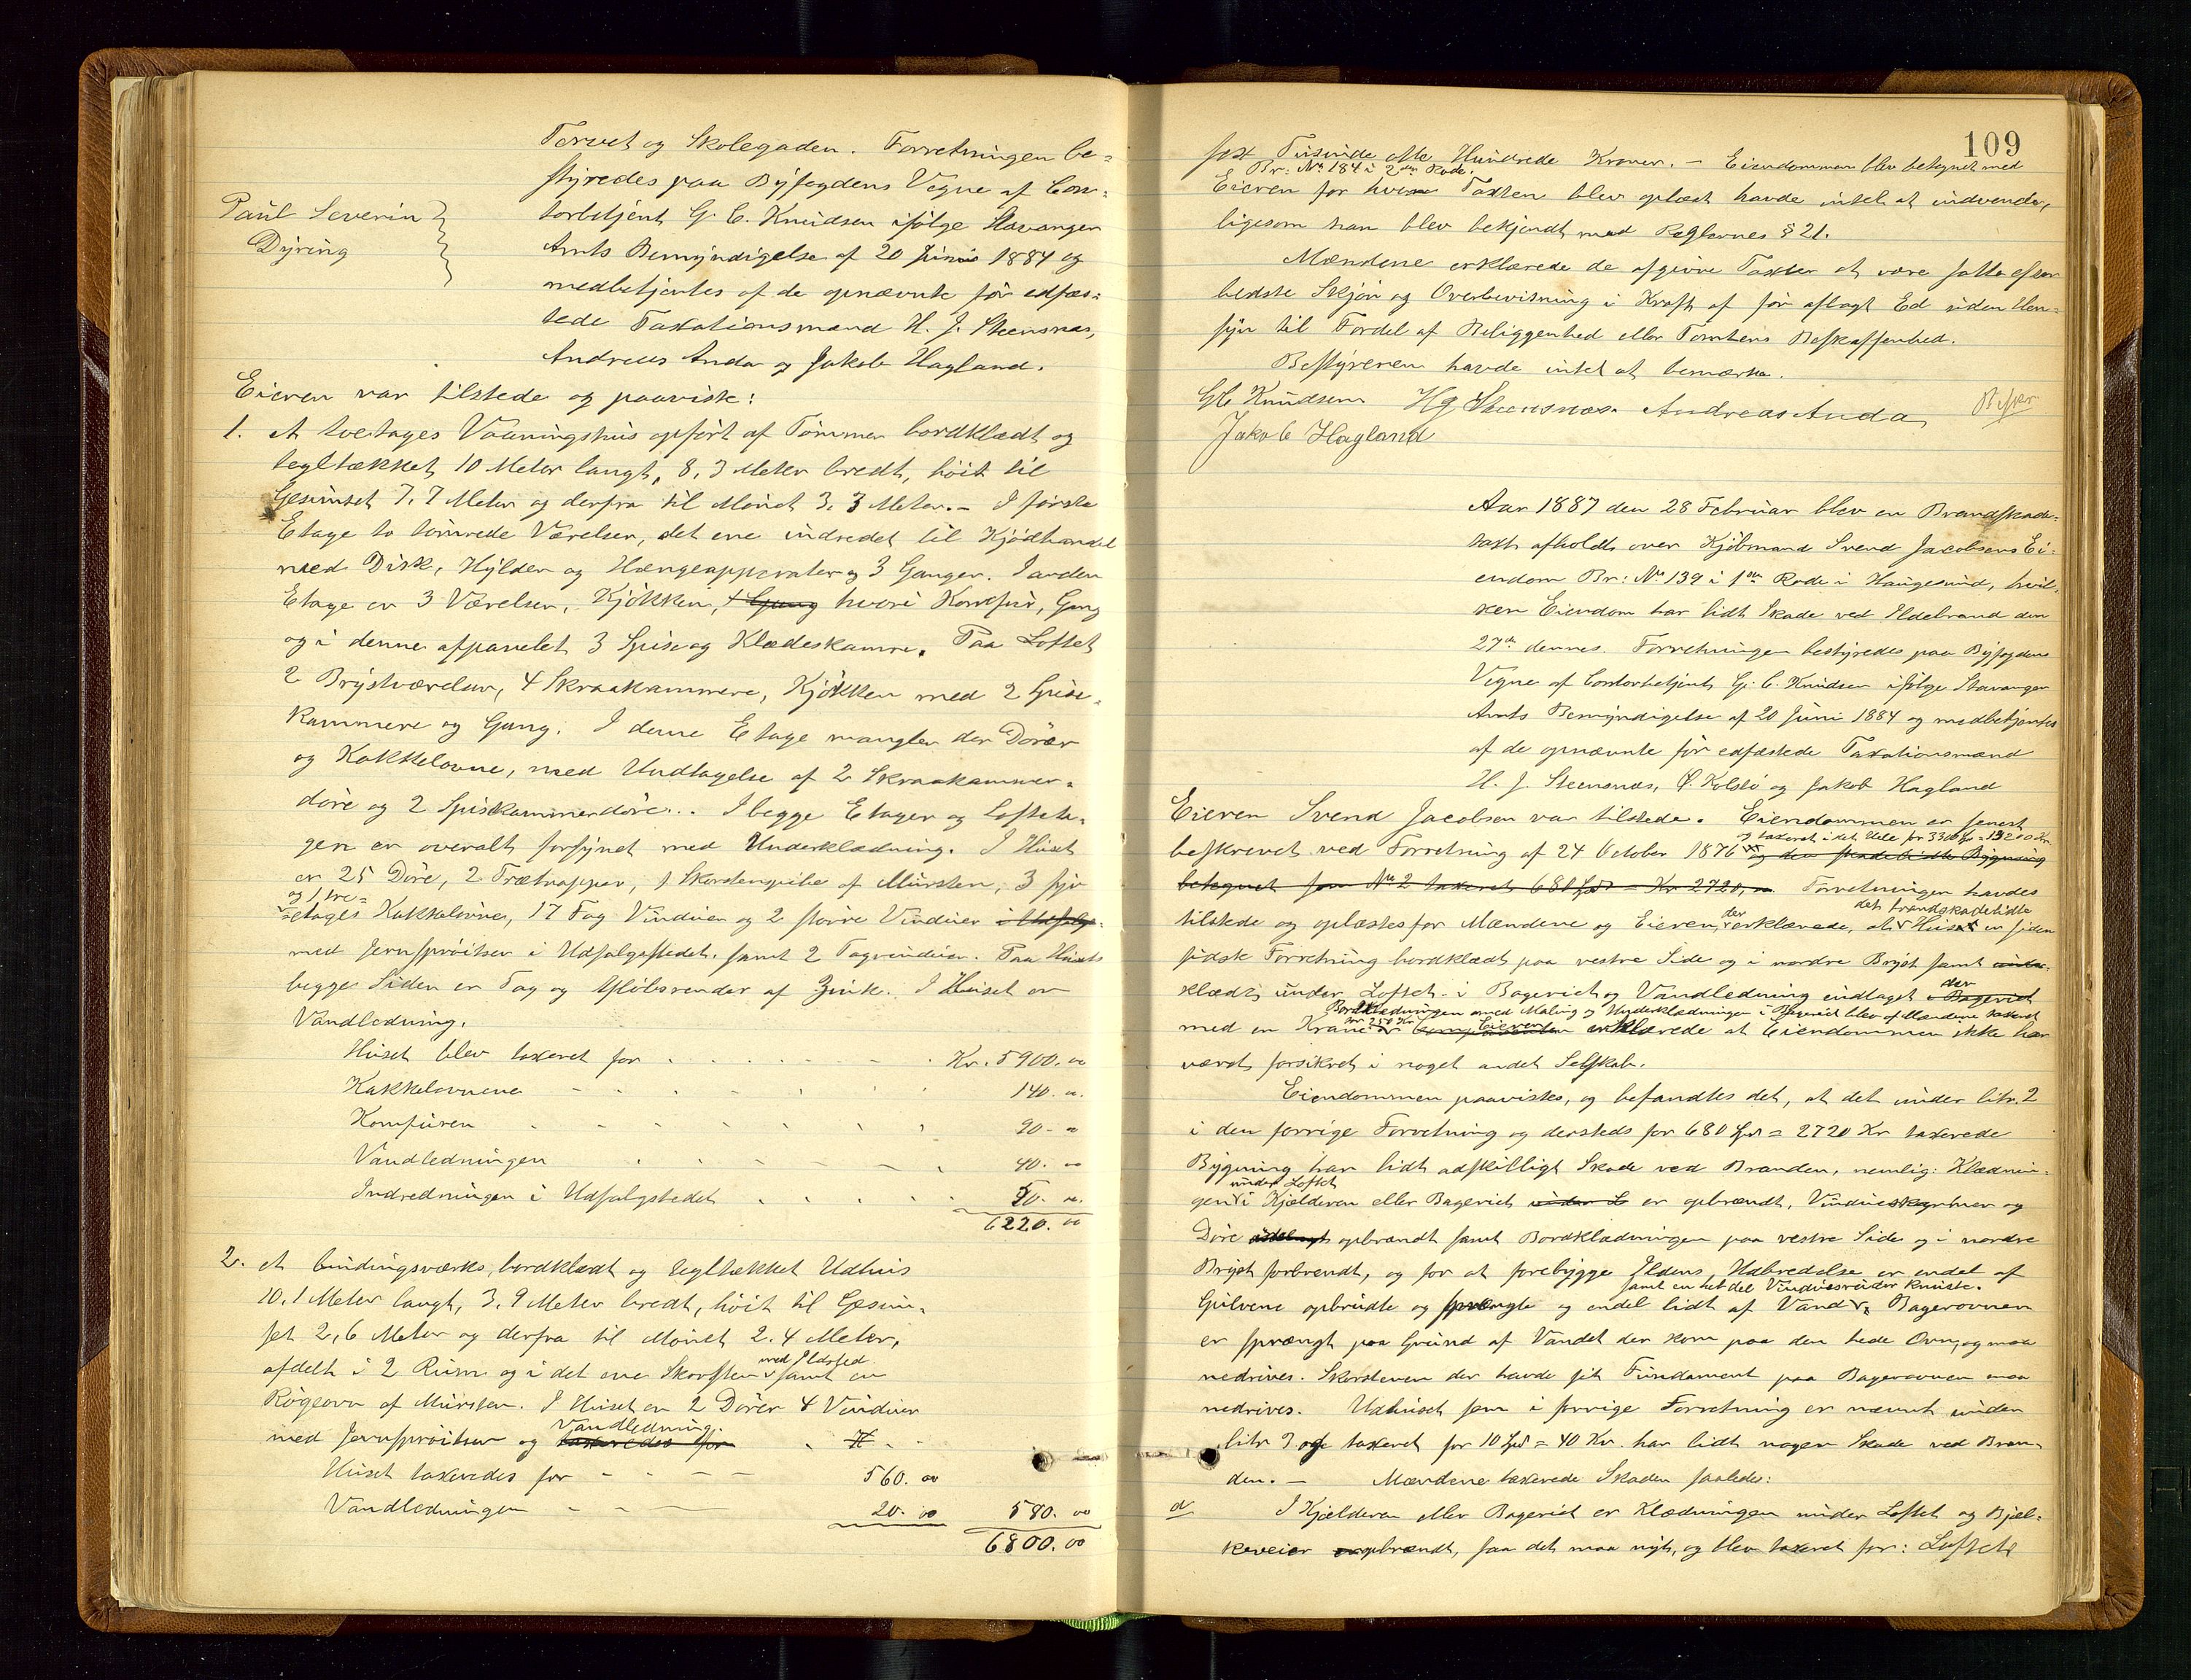 Torvet og Skolegaden. Forretningen be-
styredes paa Byfogdens Vegne af Con-
Paul Severin
torbetjent G. C. Knudsen ifölge Stavanger
Dyring
Amts Bemyndigelse af 20 Juni 1884 og
medbetjentes af de opnævnte för edfæs-
tede Taxationsmænd H. J. Steensnæs,
Andreas Anda og Jakob Hagland.
Eieren var tilstede og paaviste:
1. et toetages Vaaningshus opfört af Tömmer bordklædt og
tegltækket, 10 Meter langt, 8,3 Meter bredt, höit til
Gesimset 7,7 Meter og derfra til Mönet 3,3 Meter. - I förste
Etage to tömrede Værelser, det ene indredet til Kjödhandel
med Disk, Hylder og Hængeapparater og 3 Ganger. I anden
Etage er 3 Værelser, Kjökken, + Gang hvori Komfur, Gang
og i denne afpanelet 3 Spise og Klædeskamre. Paa Loftet
2 Brystværelser, 4 Skraakammere, Kjökken med 2 Spise-
kammere og Gang. I denne Etage mangler der Dörer
og Kakkelovne, med Undtagelse af 2 Skraakammer-
döre og 2 Spiskammerdöre... I begge Etager og Lofteta-
gen er overalt forsynet med Underklædning. I Huset
er 25 Döre, 2 Trætrapper, 1 Skorstenspibe af Mursten, 3 fyr
og 1 tre=
etages Kakkelovne, 17 Fag Vinduer og 2 större Vinduer i Udsalgs-
med Jernspröitser i Udsalgsstedet, samt 2 Tagvinduer. Paa Husets
begge Sider er Tag og Afløbsrender af Zink. I Huset er
Vandledning.
Huset blev taxeret for . . . . Kr. 5900.00
Kakkelovnene 140.00
Komfuren 90.00
Vandledningen 40.00
Indredningen i Udsalgstedet 50.00
6220.00
2. et bindingsværks, bordklædt og tegltækket Udhus
10,1 Meter langt, 3,9 Meter bredt, höit til Gesim-
set 2,6 Meter og derfra til Mönet 2.4 Meter,
med Ildsted
afdelt i 2 Rum og i det ene Skorsten samt en
Rögeovn af Mursten. I Huset er 2 Dörer 4 Vinduer
Vandledning.
med Jernspröitser og taxeredes for
Huset taxeredes for 560.00
Vandledningen 20.00 580.00
6800.00
109
sex Tusinde otte Hundrede Kroner. - Eiendommen blev betegnet med
Br: No 184 i 2den Rode.
Eieren for hvem Taxten blev oplæst havde intet at indvende,
ligesom han blev bekjendt med Reglernes § 21.
Mændene erklærede de afgivne Taxter at være satte efter
bedste Skjön og Overbevisning i Kraft af för aflagt Ed uden Hen-
syn til Fordel af Beliggenhed eller Tomtens Beskaffenhed.
Bestyreren havde intet at bemærke.
G C Knudsen H J Steensnæs. Andreas Anda
Jakob Hagland
Aar 1887 den 28 Februar blev en Brandskade-
taxt afholdt over Kjöbmand Svend Jacobsens Ei-
endom Br: No 139 i 1ste Rode i Haugesund, hvil-
ken Eiendom har lidt Skade ved Ildebrand den
27de dennes. Forretningen bestyredes paa Byfogdens
Vegne af Contorbetjent G. C. Knudsen ifölge Stavanger
Amts Bemyndigelse af 20 Juni 1884 og medbetjentes
af de opnævnte för edfæstede Taxationsmænd
H. J. Steensnæs, Ö. Kolstö og Jakob Hagland
Eieren Svend Jacobsen var tilstede. Eiendommen er senest
og taxeret i det Hele for 3300 Spd = 13200 Kr.
beskrevet ved Forretning af 24 October 1876 og den skadelidte Bygning
betegnet som No 2 taxeret 680 Spd = Kr 2720,00 Forretningen havdes
det brandskadelidte
tilstede og oplæstes for Mændene og Eieren, der erklærede, at Huset er siden
sidste Forretning bordklædt paa vestre Side og i nordre Bryst samt under-
klædt under Loftet i Bageriet og Vandledning indlaget i Bageriet
Bordklædningen med Maling og Underklædningen i Bageriet blev af Mændene taxeret
for 250 Kr.
med en Kran. Eieren erklærede at Eiendommen ikke har
været forsikret i noget andet Selskab.
Eiendommen paavistes, og befandtes det, at det under litr. 2
i den forrige Forretning og dersteds for 680 Spd = 2720 Kr taxerede
Bygning har lidt adskilligt Skade ved Branden, nemlig: Klædnin-
under Loftet
gen i Kjælderen eller Bageriet under L er opbrændt, Vindueskarmer og
Döre ödelagt opbrændt samt Bordklædningen paa vestre Side og i nordre
Bryst forbrændt, og for at forebygge Ildens Udbredelse er endel af
samt en hel del Vinduesruder knuste.
Gulvene opbrudte og sprængte og endel lidt af Vand. Bagerovnen
er sprængt paa Grund af Vandet der kom paa den hede Ovn, og maa
nedrives. Skorstenen der havde sit Fundament paa Bagerovnen maa
nedrives. Udhuset som i forrige Forretning er nævnt under
litr 3 og taxeret for 10 Spd = 40 Kr. har lidt nogen Skade ved Bran-
den. - Mændene taxerede Skaden saaledes:
a I Kjælderen eller Bageriet er Klædningen under Loftet og Bjæl-
keveier opbrændt, saa det maa nyt, og blev taxeret for: Loftet